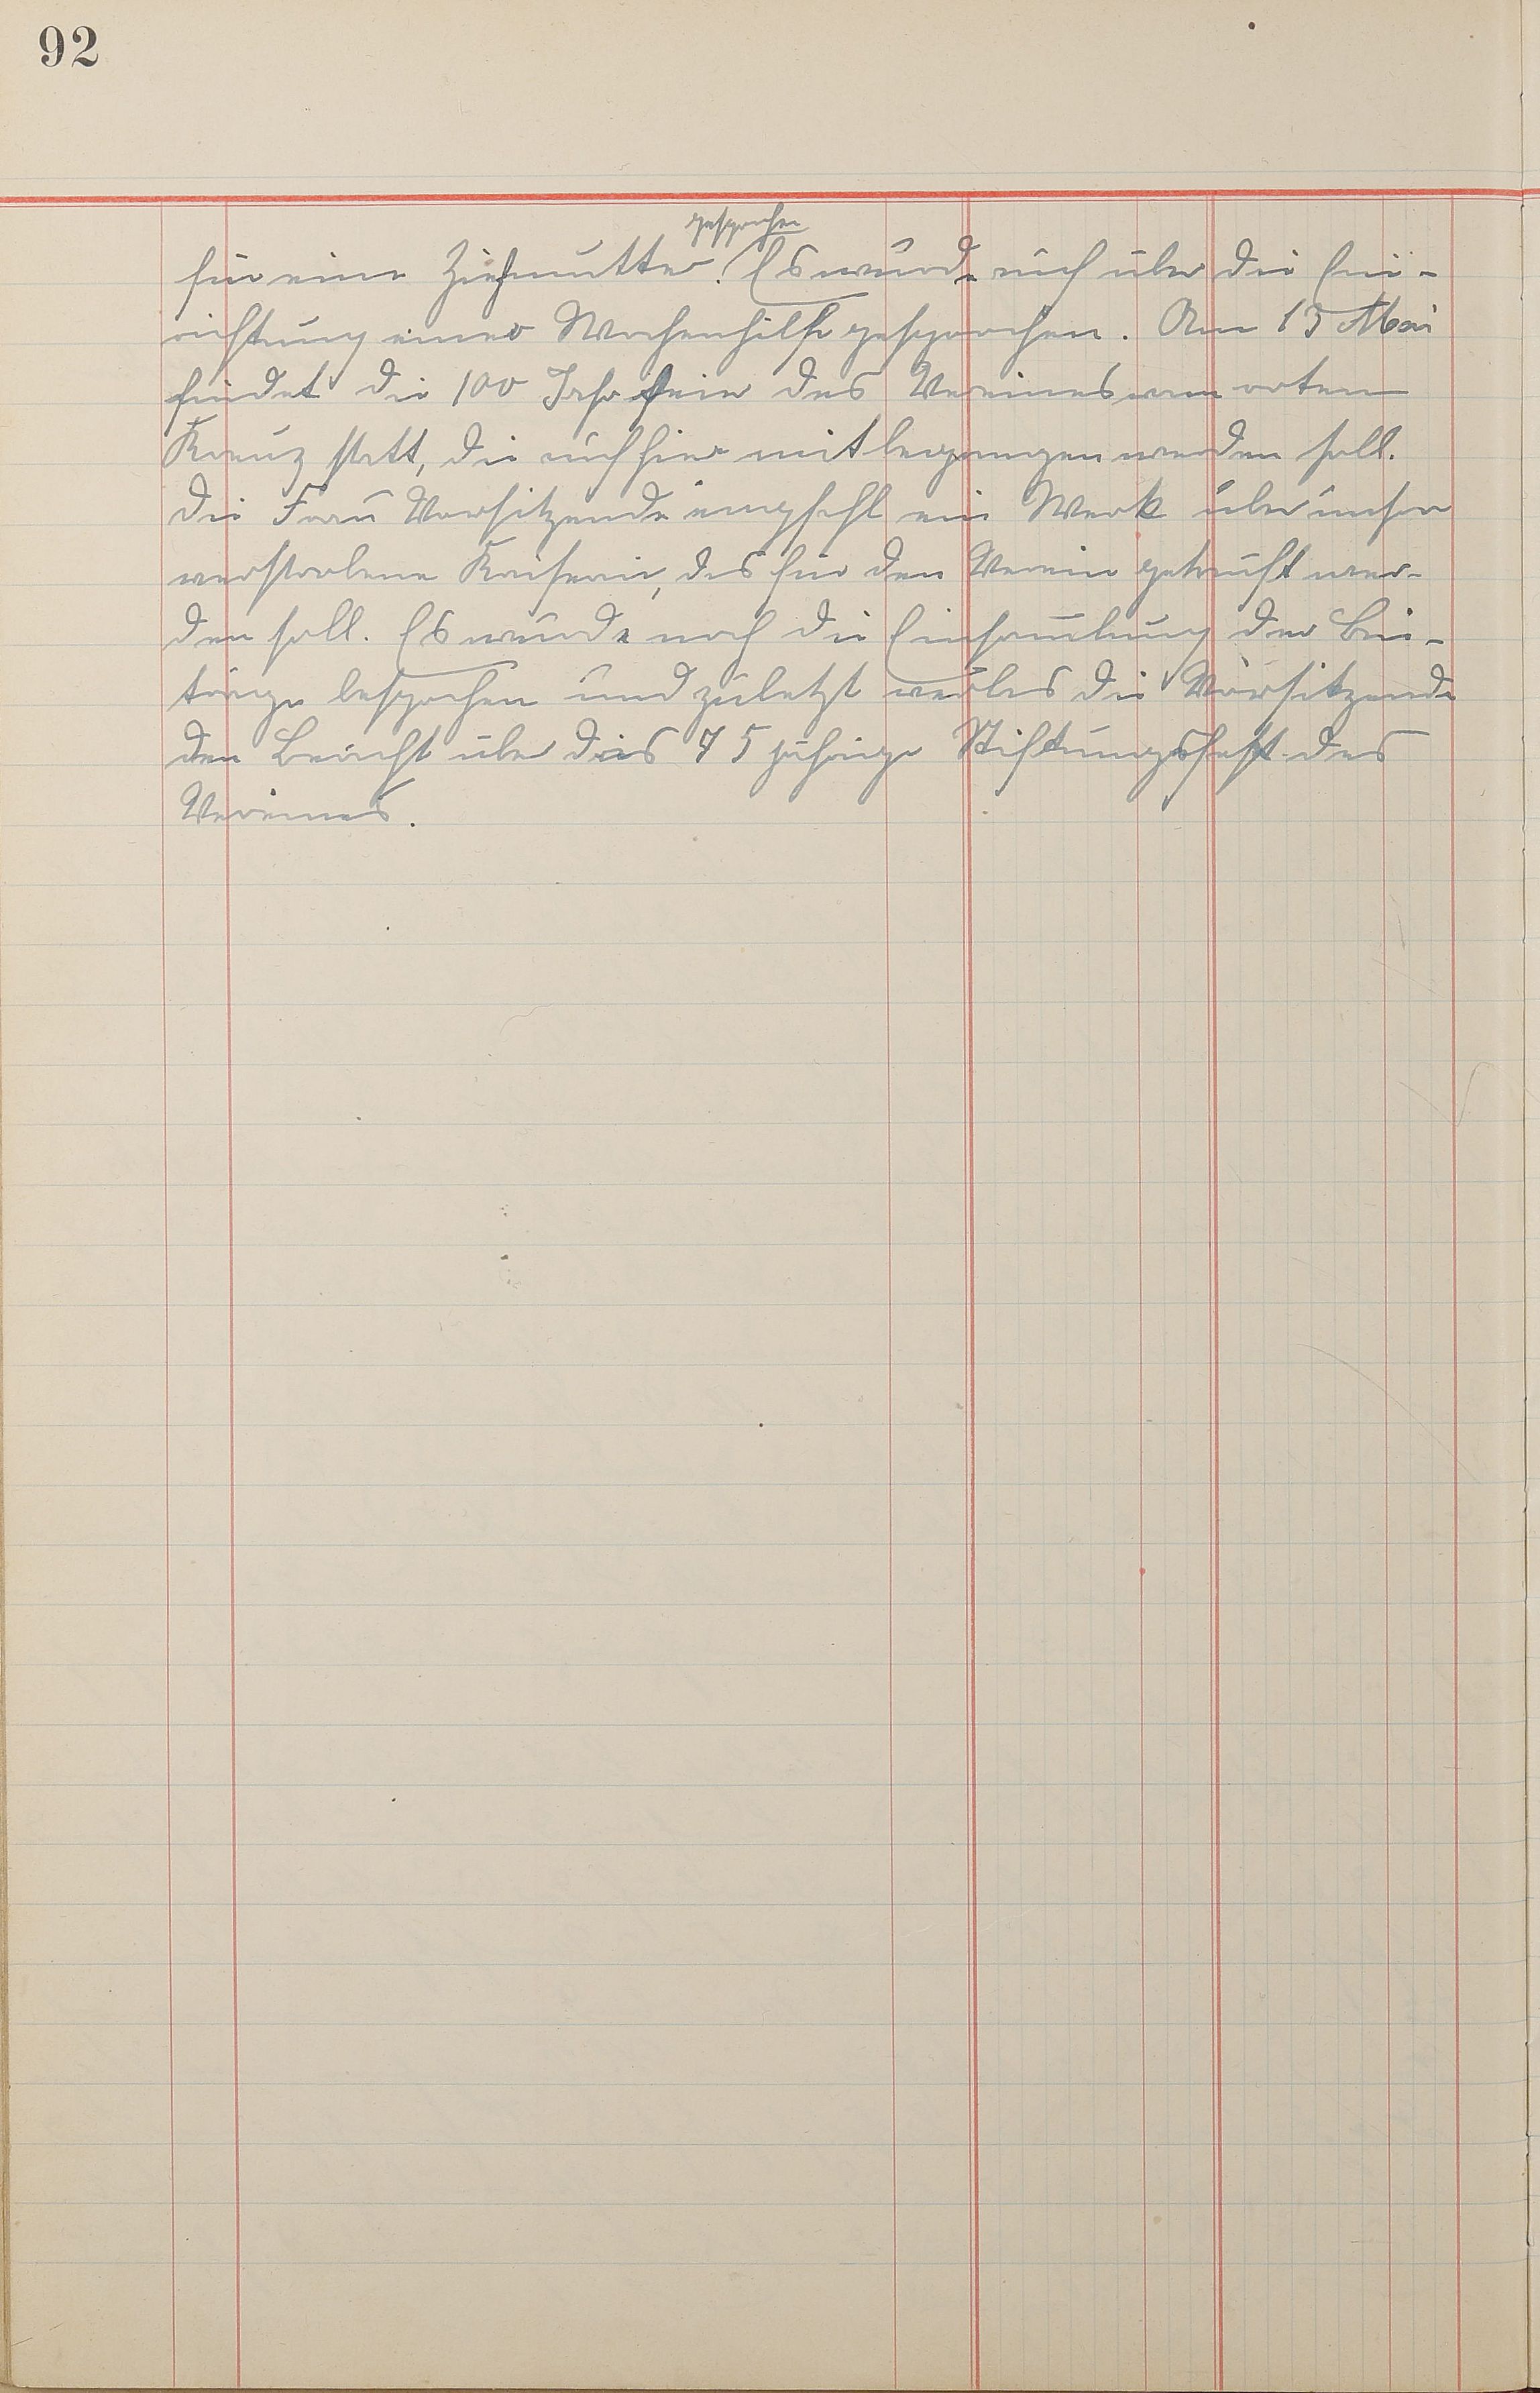 92
gesprochen
für eine Ziehmutter. Es wurde auch über die Ein-
richtung einer Wochenhilfe gesprochen. Am 13 Mai
findet die 100 Jahrfeier des Vereines vom roten
Kreuz statt, die auch hier mit begangen werden soll.
Die Frau Vorsitzende empfahl ein Werk über unsere
verstorbene Kaiserin, das für den Verein gekauft wer-
den soll. Es wurde noch die Einsammlung der Bei-
träge besprochen und zuletzt verlas die Vorsitzende
den Bericht über das 75 jährige Stiftungsfest des
Vereines.